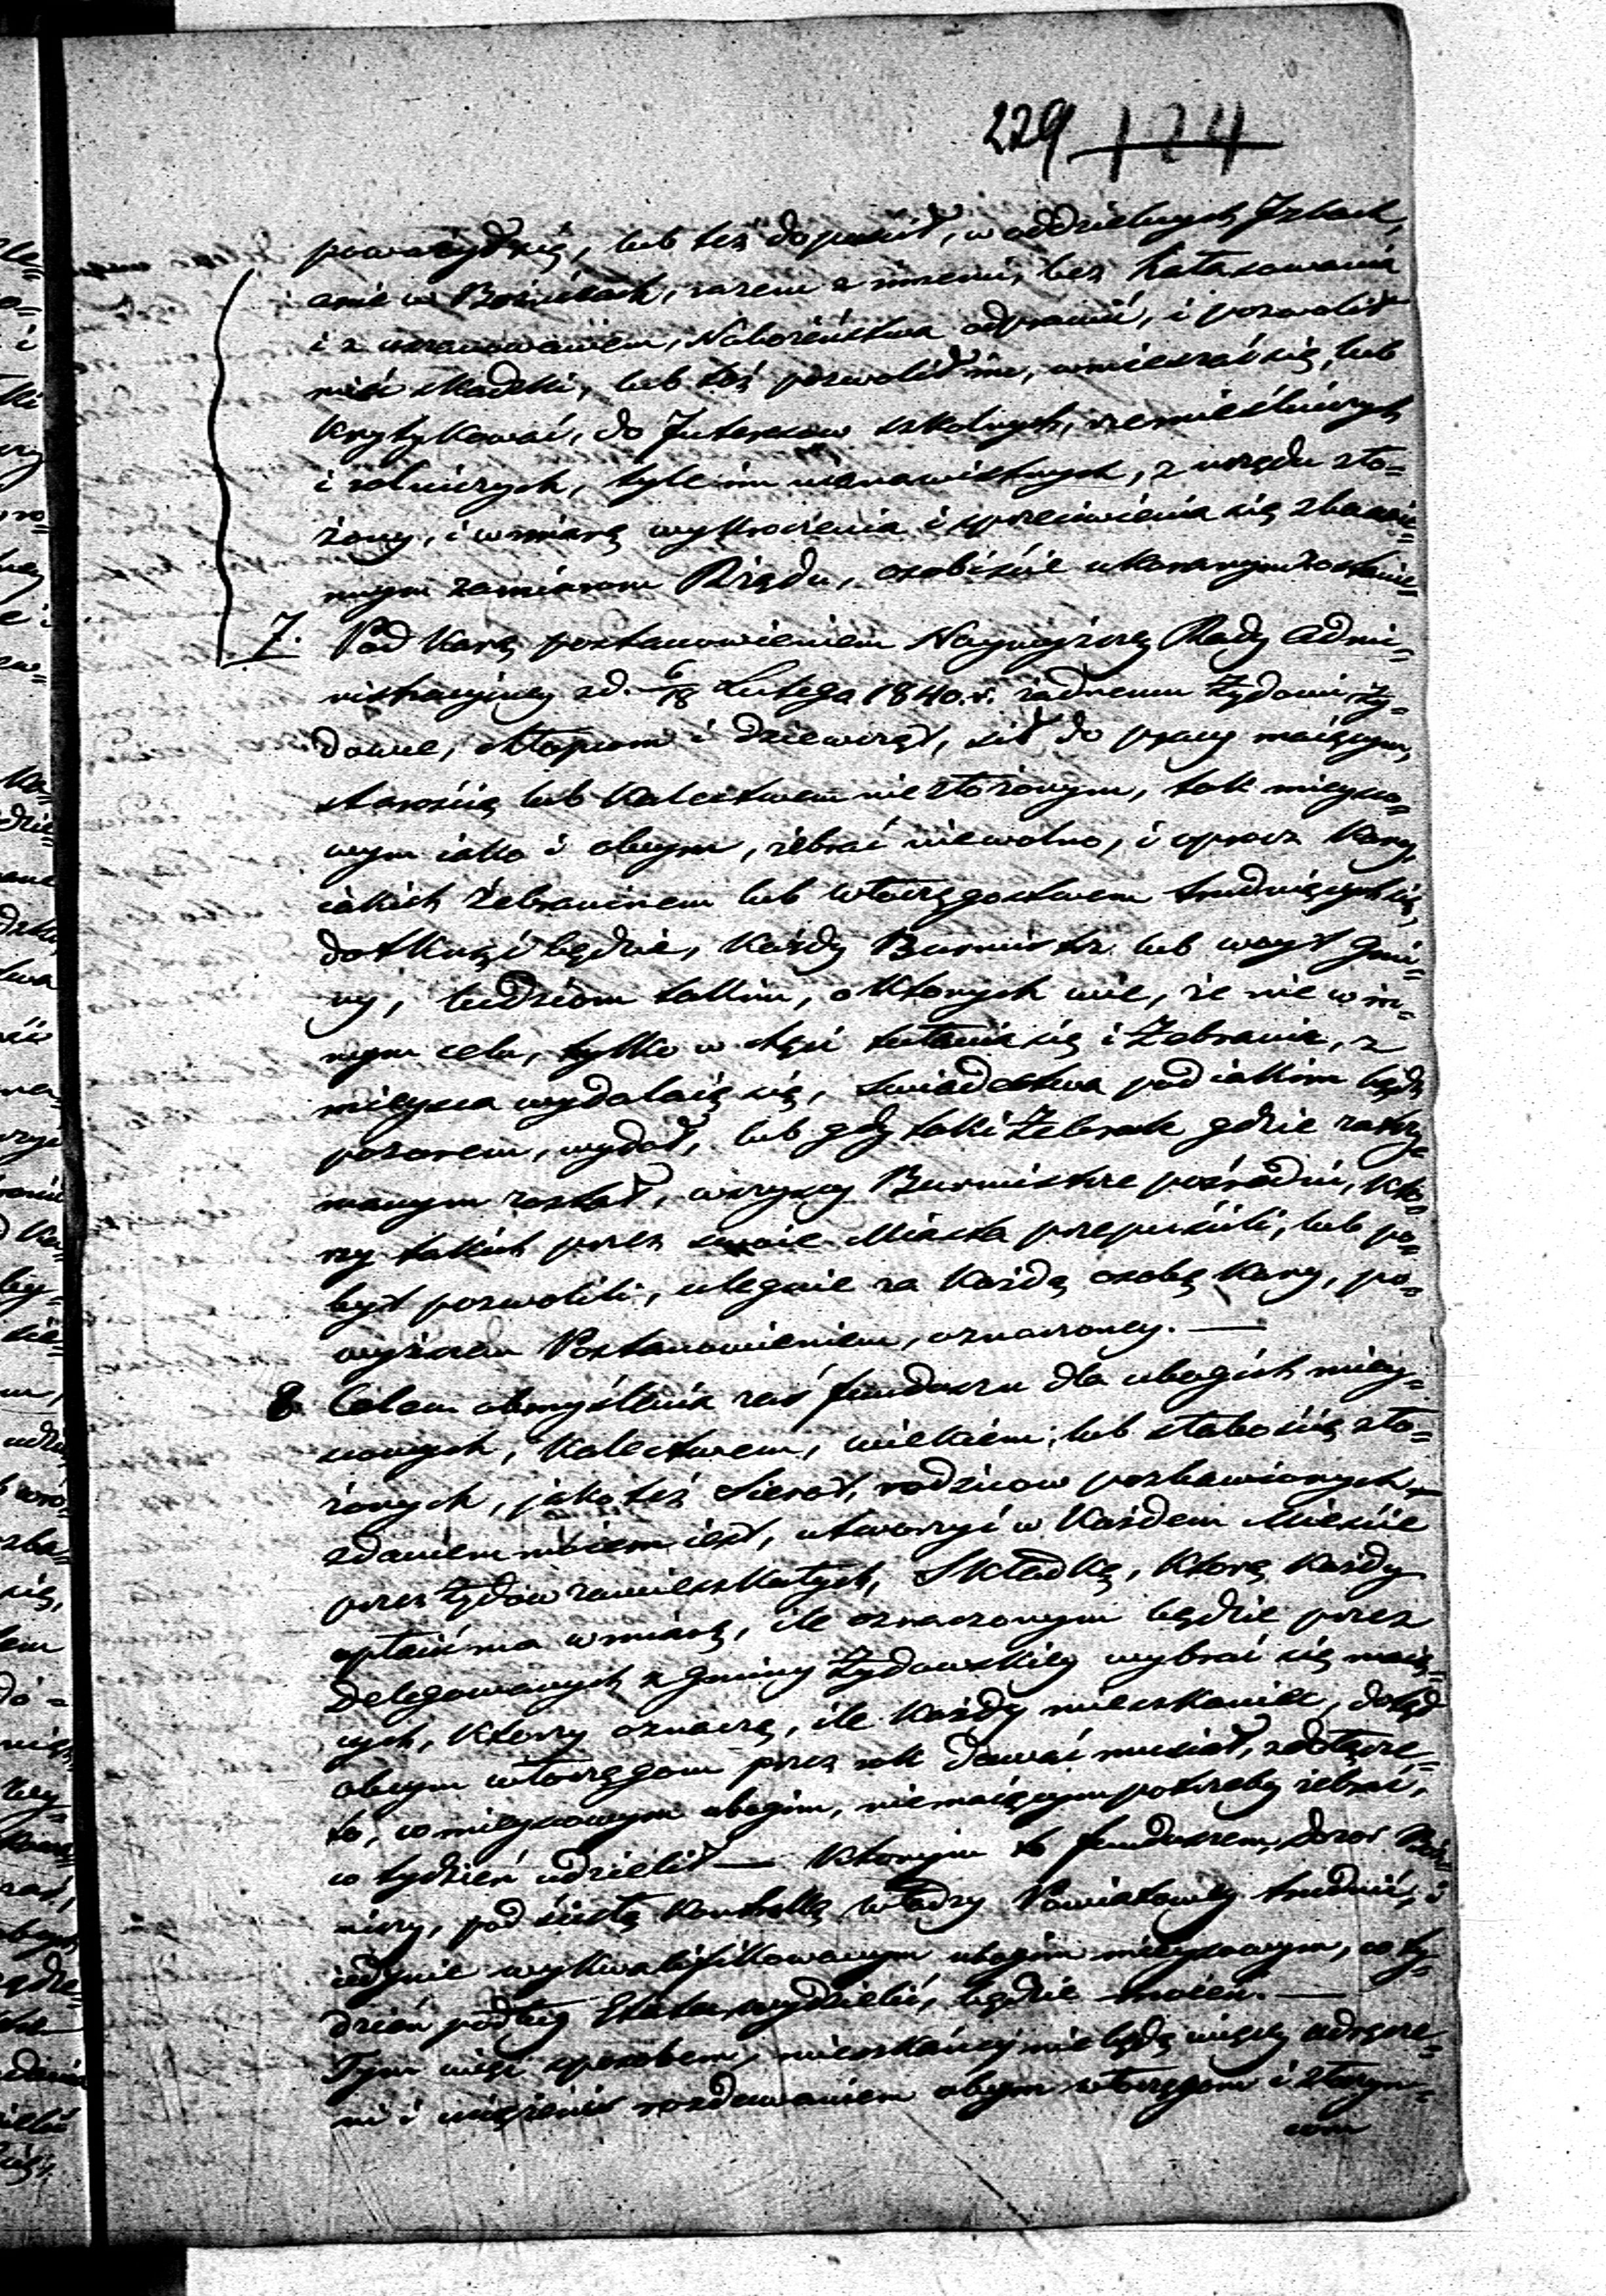 229 124
poważył się, lub też dopuścił, w oddzielnych Izbach,
a nie w Bożnicach, razem z innemi, bez hałasowania
i z uszanowaniem, Nabożeństwa odprawić, i pozwolił
nieść składki, lub też pozwolił im, wmieszać się, lub
krytykować, do Interessow szkolnych, rzemieślniczych
i rolniczych, tyle im nienawistnych, z urzędu zło=
żony, i w miarę wykroczenia i sprzeciwienia się zbawie=
nnym zamiarom Rządu, osobiście ukaranym zostanie=
7. Pod karą postanowieniem Naywyższey Rady Admi=
nistracyiney z d. 6/18 Lutego 1840. r. żadnemu Żydowi, Ży=
dowce, chłopcom i dziewcząt, sił do pracy maiącym,
starością lub kalectwem nie złożonym, tak mieysco=
wym iako i obcym, żebrać niewolno, i oprocz kary,
iakich żebraniem lub włóczęgostwem trudniących się,
dotknąć będzie, każdy Burmistrz lub woyt Gmi=
ny, ludziom takim, o ktorych wie, że nie w in=
nym celu, tylko w chęci tułania się i Żebrania, z
mieysca wydalaią się, świadectwa pod iakim bądź
pozorem, wydał, lub gdy taki Żebrak gdzie zatrzy=
manym został, wszyscy Burmistrze pośredni, kto=
rzy takich przez swoie Miasta przepuścili, lub po=
byt pozwolili, ulegnie za każdą osobę kary, po=
wyższem Postanowieniem, oznaczoney. —
8 Celem obmyślenia zaś funduszu dla ubogich miey=
scowych, kalectwem, wiekiem, lub słabością zło=
żonych, jako też Sierot, rodzicow pozbawionych
zdaniem moiem iest, utworzyć w każdem Mieście
przez Żydow zamieszkałych, Składkę, ktorą każdy
opłacić ma w miarę, ile oznaczonym będzie przez
Delegowanych z gminy Żydowskiey wybrać się maią=
cych, ktorzy oznaczą, ile każdy mieszkaniec, dotąd
obcym włoczęgom przez rok dawać musiał,
to, co mieyscowym ubogim, niemaiącym potrzeby żebrać,
co tydzień udzielił — ktorym to funduszem, dozor Boż=
niczy, pod ścisłą kontrollą władzy Powiatowey trudnić, i
iedynie wykwalifikowanym ubogim mieyscowym, co ty=
dzień podług Etatu wydzielić, będzie mocen. —
Tym więc sposobem, mieszkańcy nie będą więcey
ni i rozdawaniem obcym włoczęgom i
com